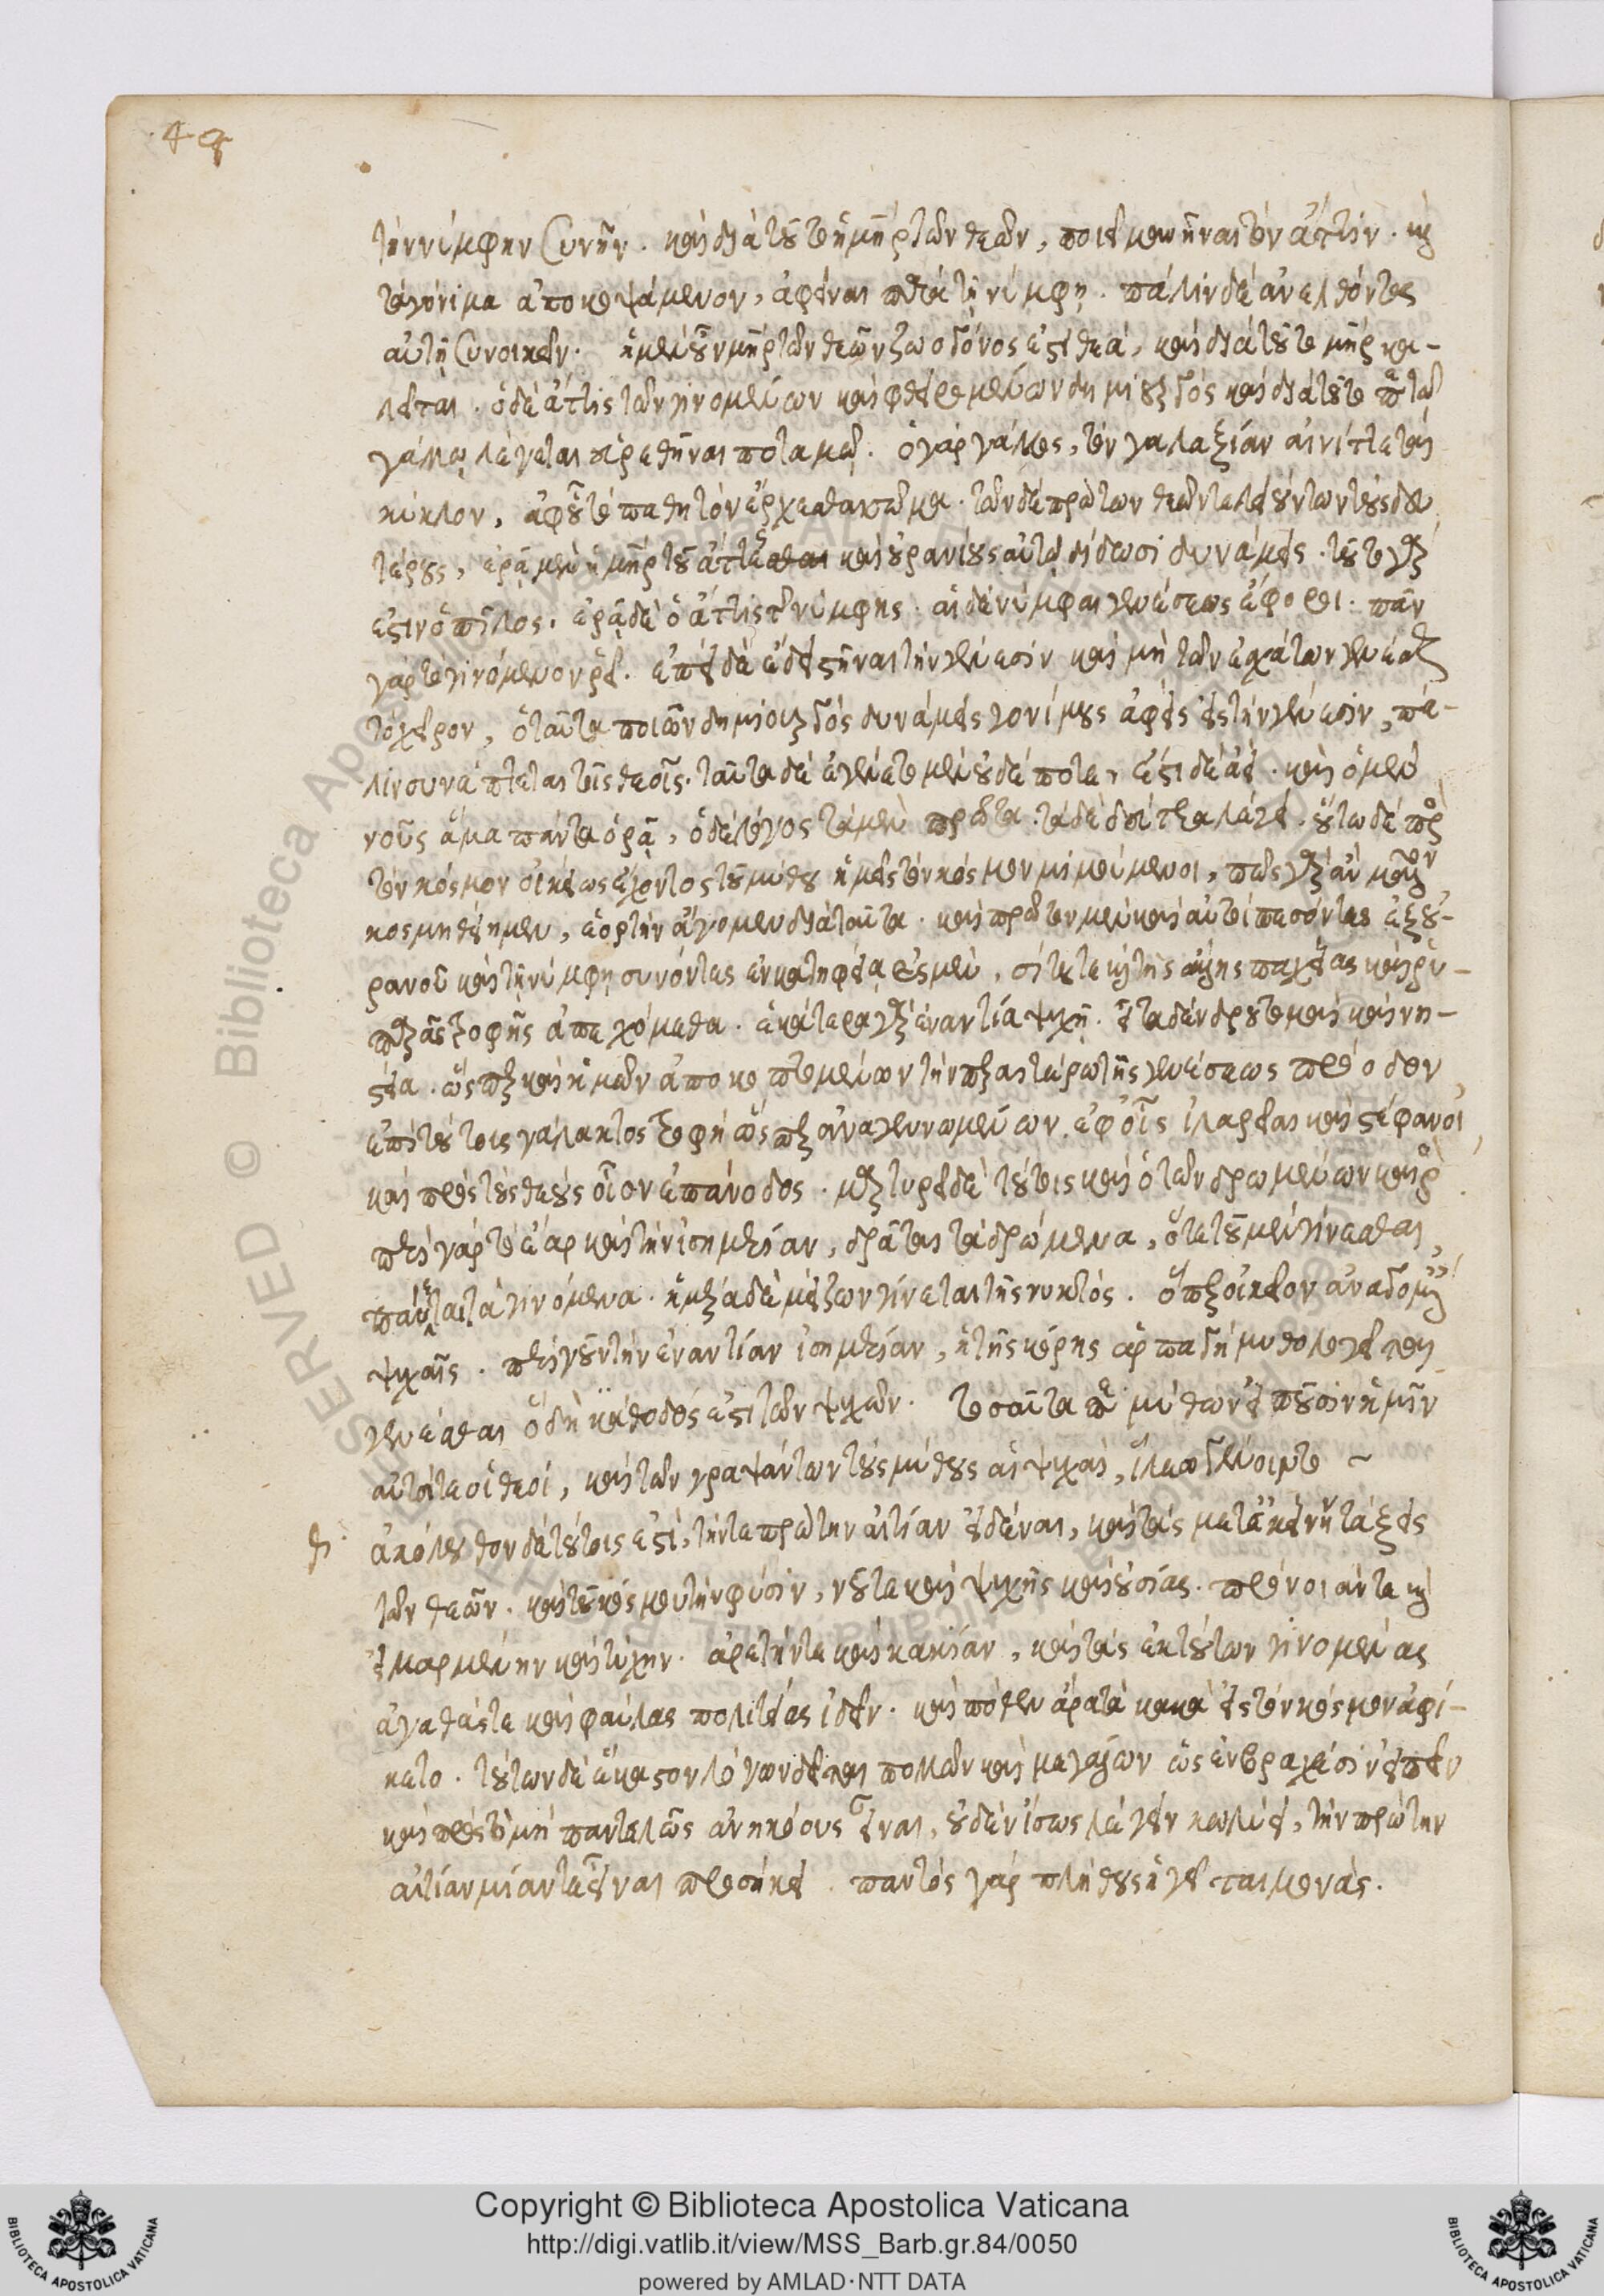 48
τὴν νύμφην συνῆν. καὶ διὰ τοῦτο ἡ μήτηρ τῶν θεῶν, ποιεῖ μανῆναι τὸν ἄττιν. καὶ
τὰ γόνιμα ἀποκοψάμενον, ἀφεῖναι παρὰ τῇ νύμφῃ. πάλιν δὲ ἀνελθόντα
αὐτῇ συνοικεῖν. ἡ μὲν οὖν μήτηρ τῶν θεῶν ζωογόνος ἐστὶ θεά, καὶ διὰ τοῦτο μήτηρ κα-
λεῖται. ὁ δὲ ἄττις τῶν γινομένων καὶ φθειρομένων δημιουργός καὶ διὰ τοῦτο παρὰ τῷ
γάλλῳ λέγεται εὑρεθῆναι ποταμῷ. ὁ γὰρ γάλλος, τὸν γαλαξίαν αἰνίττεται
κύκλον, ἀφ' οὗ τὸ παθητὸν ἔρχεσθαι σῶμα. τῶν δὲ πρώτων θεῶν τελειούντων τοὺς δευ
τέρους, ἐρᾷ μὲν ἡ μήτηρ τοῦ ἄττεως καὶ οὐρανίους αὐτῷ δίδωσι δυνάμεις. τοῦτο γάρ
ἐστιν ὁ πῖλος. ἐρᾷ δὲ ὁ ἄττις τῆς νύμφης. αἱ δὲ νύμφαι γενέσεως ἔφοροι. πᾶν
γὰρ τὸ γινόμενον ῥεῖ. ἐπεὶ δὲ ἔδει στῆναι τὴν γένεσιν καὶ μὴ τῶν ἐσχάτων γενέσθαι
τὸ χεῖρον, ὁ ταῦτα ποιῶν δημιουργός δυνάμεις γονίμους ἀφεὶς εἰς τὴν γένεσιν, πά-
λιν συνάπτεται τοῖς θεοῖς. ταῦτα δὲ ἐγένετο μὲν οὐδέποτε, ἔστι δὲ ἀεί. καὶ ὁ μὲν
νοῦς ἅμα πάντα ὁρᾷ, ὁ δὲ λόγος τὰ μὲν πρῶτα τὰ δὲ δεύτερα λέγει. οὕτω δὲ πρὸς
τὸν κόσμον οἰκείως ἔχοντος τοῦ μύθου ἡμεῖς τὸν κόσμον μιμούμενοι, πῶς γὰρ ἂν μᾶλλον
κοσμηθείημεν, ἑορτὴν ἄγομεν διὰ ταῦτα. καὶ πρῶτον μὲν καὶ αὐτοὶ πεσόντες ἐξ οὐ-
ρανοῦ καὶ τῇ νύμφῃ συνόντες ἐν κατηφείᾳ ἐσμὲν, σίτου τε καὶ τῆς ἄλλης παχείας καὶ ῥυ-
παρᾶς τροφῆς ἀπεχόμεθα. ἑκάτερα γὰρ ἐναντία ψυχῇ. εἶτα δένδρου τομαὶ καὶ νη-
στεία. ὥσπερ καὶ ἡμῶν ἀποκοπτομένων τὴν περαιτέρω τῆς γενέσεως πρόοδον,
ἐπὶ τούτοις γάλακτος τροφὴ ὥσπερ ἀναγεννωμένων. ἐφ' οἷς ἱλαρεῖαι καὶ στέφανοι,
καὶ πρὸς τοὺς θεοὺς οἷον ἐπάνοδος. μαρτυρεῖ δὲ τούτοις καὶ ὁ τῶν δρωμένων καιρός.
περὶ γὰρ τὸ ἔαρ καὶ τὴν ἰσημερίαν, δρᾶται τὰ δρώμενα, ὅτε τοῦ μὲν γίνεσθαι,
παύεται τὰ γινόμενα. ἡμέρα δὲ μείζων γίνεται τῆς νυκτός. ὅπερ οἰκεῖον ἀναγομέναις
ψυχαῖς. περὶ γοῦν τὴν ἐναντίαν ἰσημερίαν, ἡ τῆς κόρης ἁρπαγὴ μυθολογεῖται
γενέσθαι ὃ δὴ κάθοδός ἐστι τῶν ψυχῶν. τοσαῦτα περὶ μύθων εἰποῦσιν ἡμῖν
αὐτοί τε οἱ θεοί, καὶ τῶν γραψάντων τοὺς μύθους αἱ ψυχαί, ἵλεῳ γένοιντο ~
ἀκόλουθον δὲ τούτοις ἐστὶ, τήν τε πρώτην αἰτίαν εἰδέναι, καὶ τὰς μετ' ἐκείνην τάξεις
τῶν θεῶν. καὶ τοῦ κόσμου τὴν φύσιν, νοῦ τε καὶ ψυχῆς καὶ οὐσίας. πρόνοιάν τε καὶ
εἱμαρμένην καὶ τύχην. ἀρετήν τε καὶ κακίαν, καὶ τὰς ἐκ τούτων γινομένας
ἀγαθάς τε καὶ φαύλας πολιτείας ἰδεῖν. καὶ πόθεν ἄρα τὰ κακὰ εἰς τὸν κόσμον ἀφί-
κετο. τούτων δὲ ἕκαστον λόγων δεῖται πολλῶν καὶ μεγάλων ὡς ἐν βραχέσιν εἰπεῖν
καὶ πρὸς τὸ μὴ παντελῶς ἀνηκόους εἶναι, οὐδὲν ἴσως λέγειν κωλύει, τὴν πρώτην
αἰτίαν μίαν τε εἶναι προσήκει. παντὸς γὰρ πλήθους ἡγεῖται μονάς.
Copyright © Biblioteca Apostolica Vaticana
http://digi.vatlib.it/view/MSS_Barb.gr.84/0050
powered by AMLAD·NTT DATA